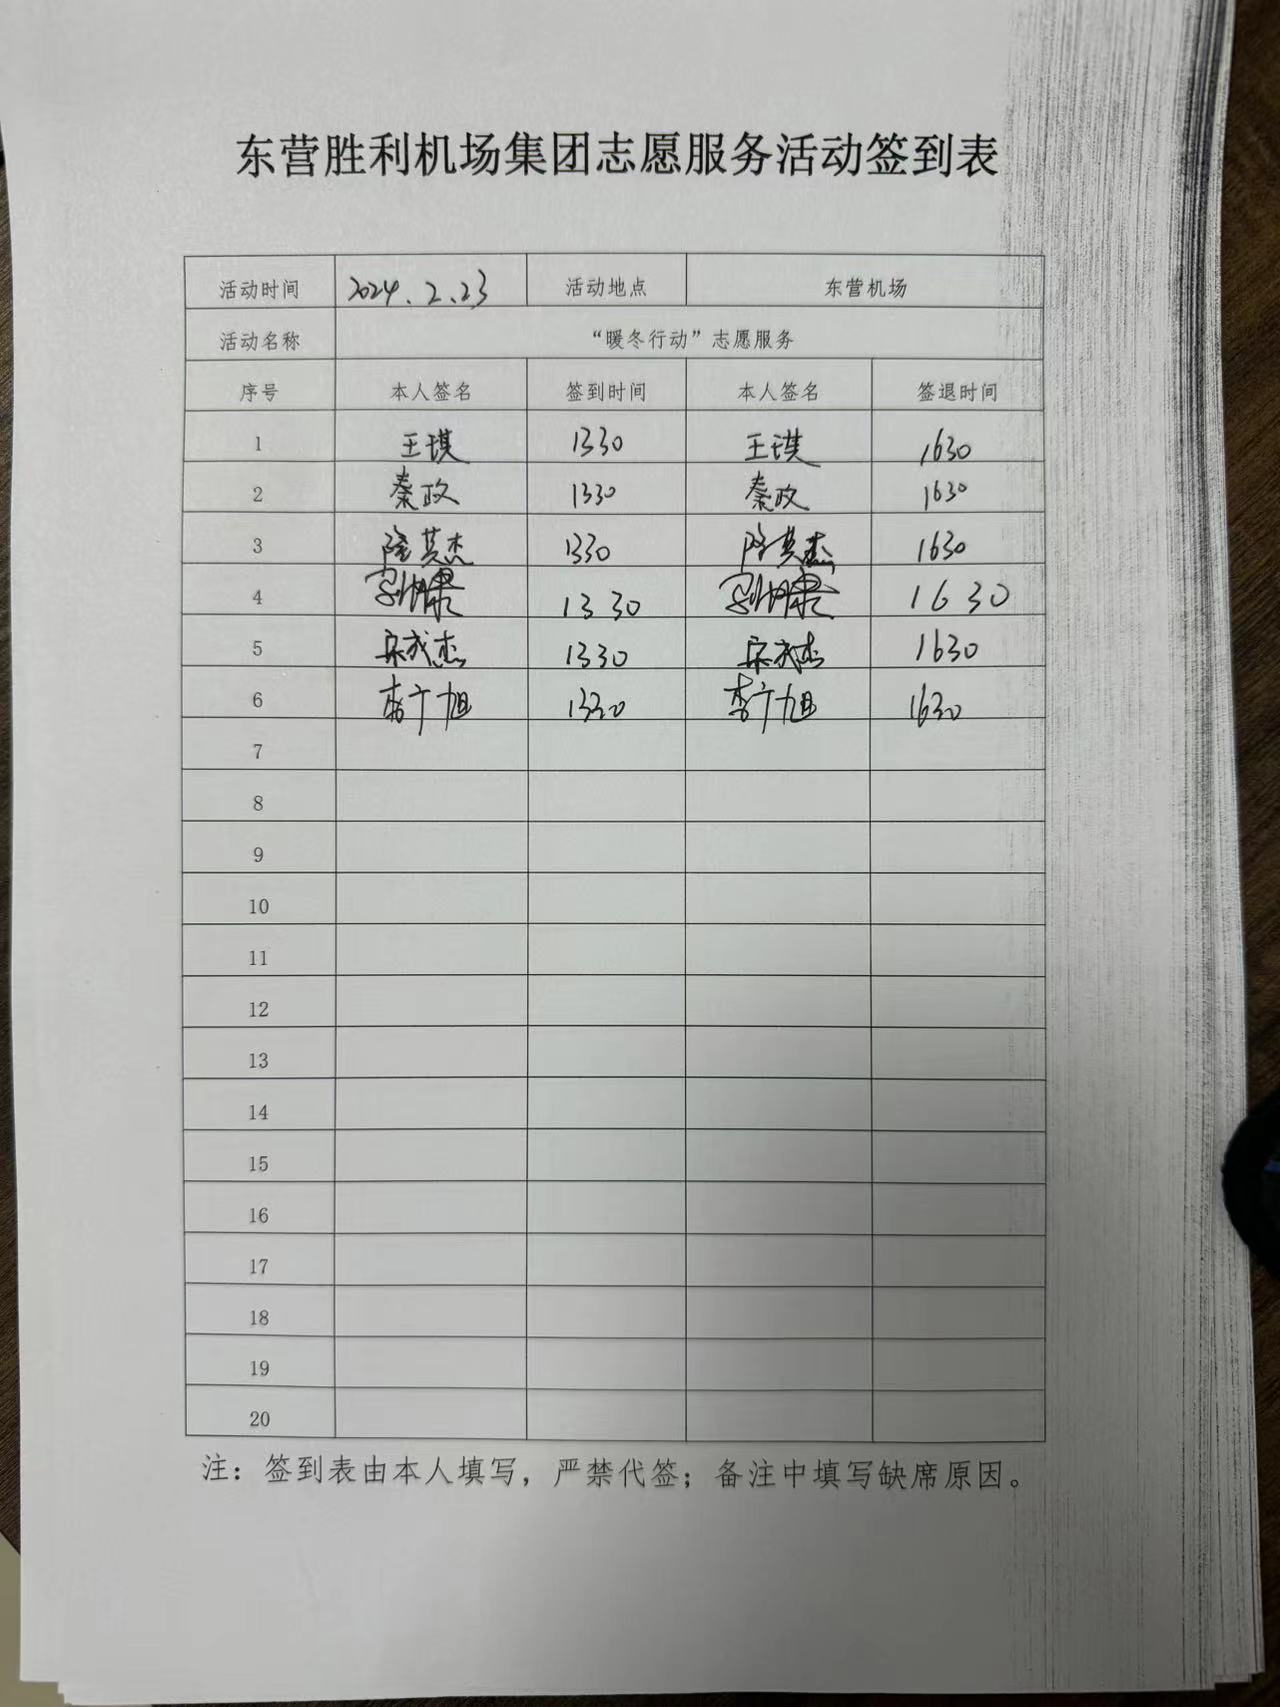 东营胜利机场集团志愿服务活动签到表
活动时间 2024.2.23 活动地点 东营机场
活动名称 “暖冬行动”志愿服务
序号 本人签名 签到时间 本人签名 签退时间
1 王琪 1330 王琪 1630
2 秦政 1330 秦政 1630
3 隆其杰 1330 隆其杰 1630
4 1330 1630
5 宋成杰 1330 宋成杰 1630
6 李广旭 1330 李广旭 1630
7
8
9
10
11
12
13
14
15
16
17
18
19
20
注：签到表由本人填写，严禁代签；备注中填写缺席原因。